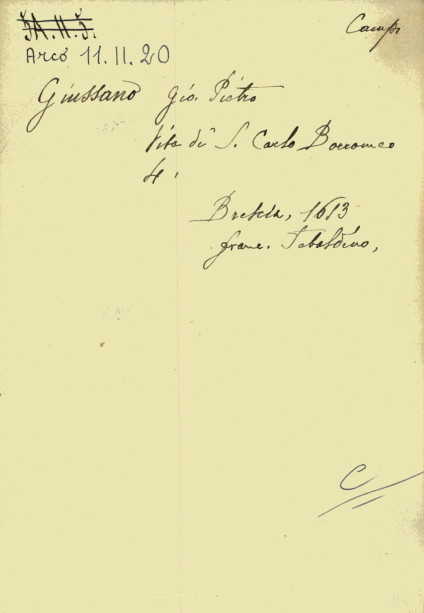 3A.11.3.
Campi
Arco 11.11.20
Giussano Gio. Pietro
Vita di S. Carlo Borromeo
4.
Brescia, 1613
franc. Tebaldino,
C